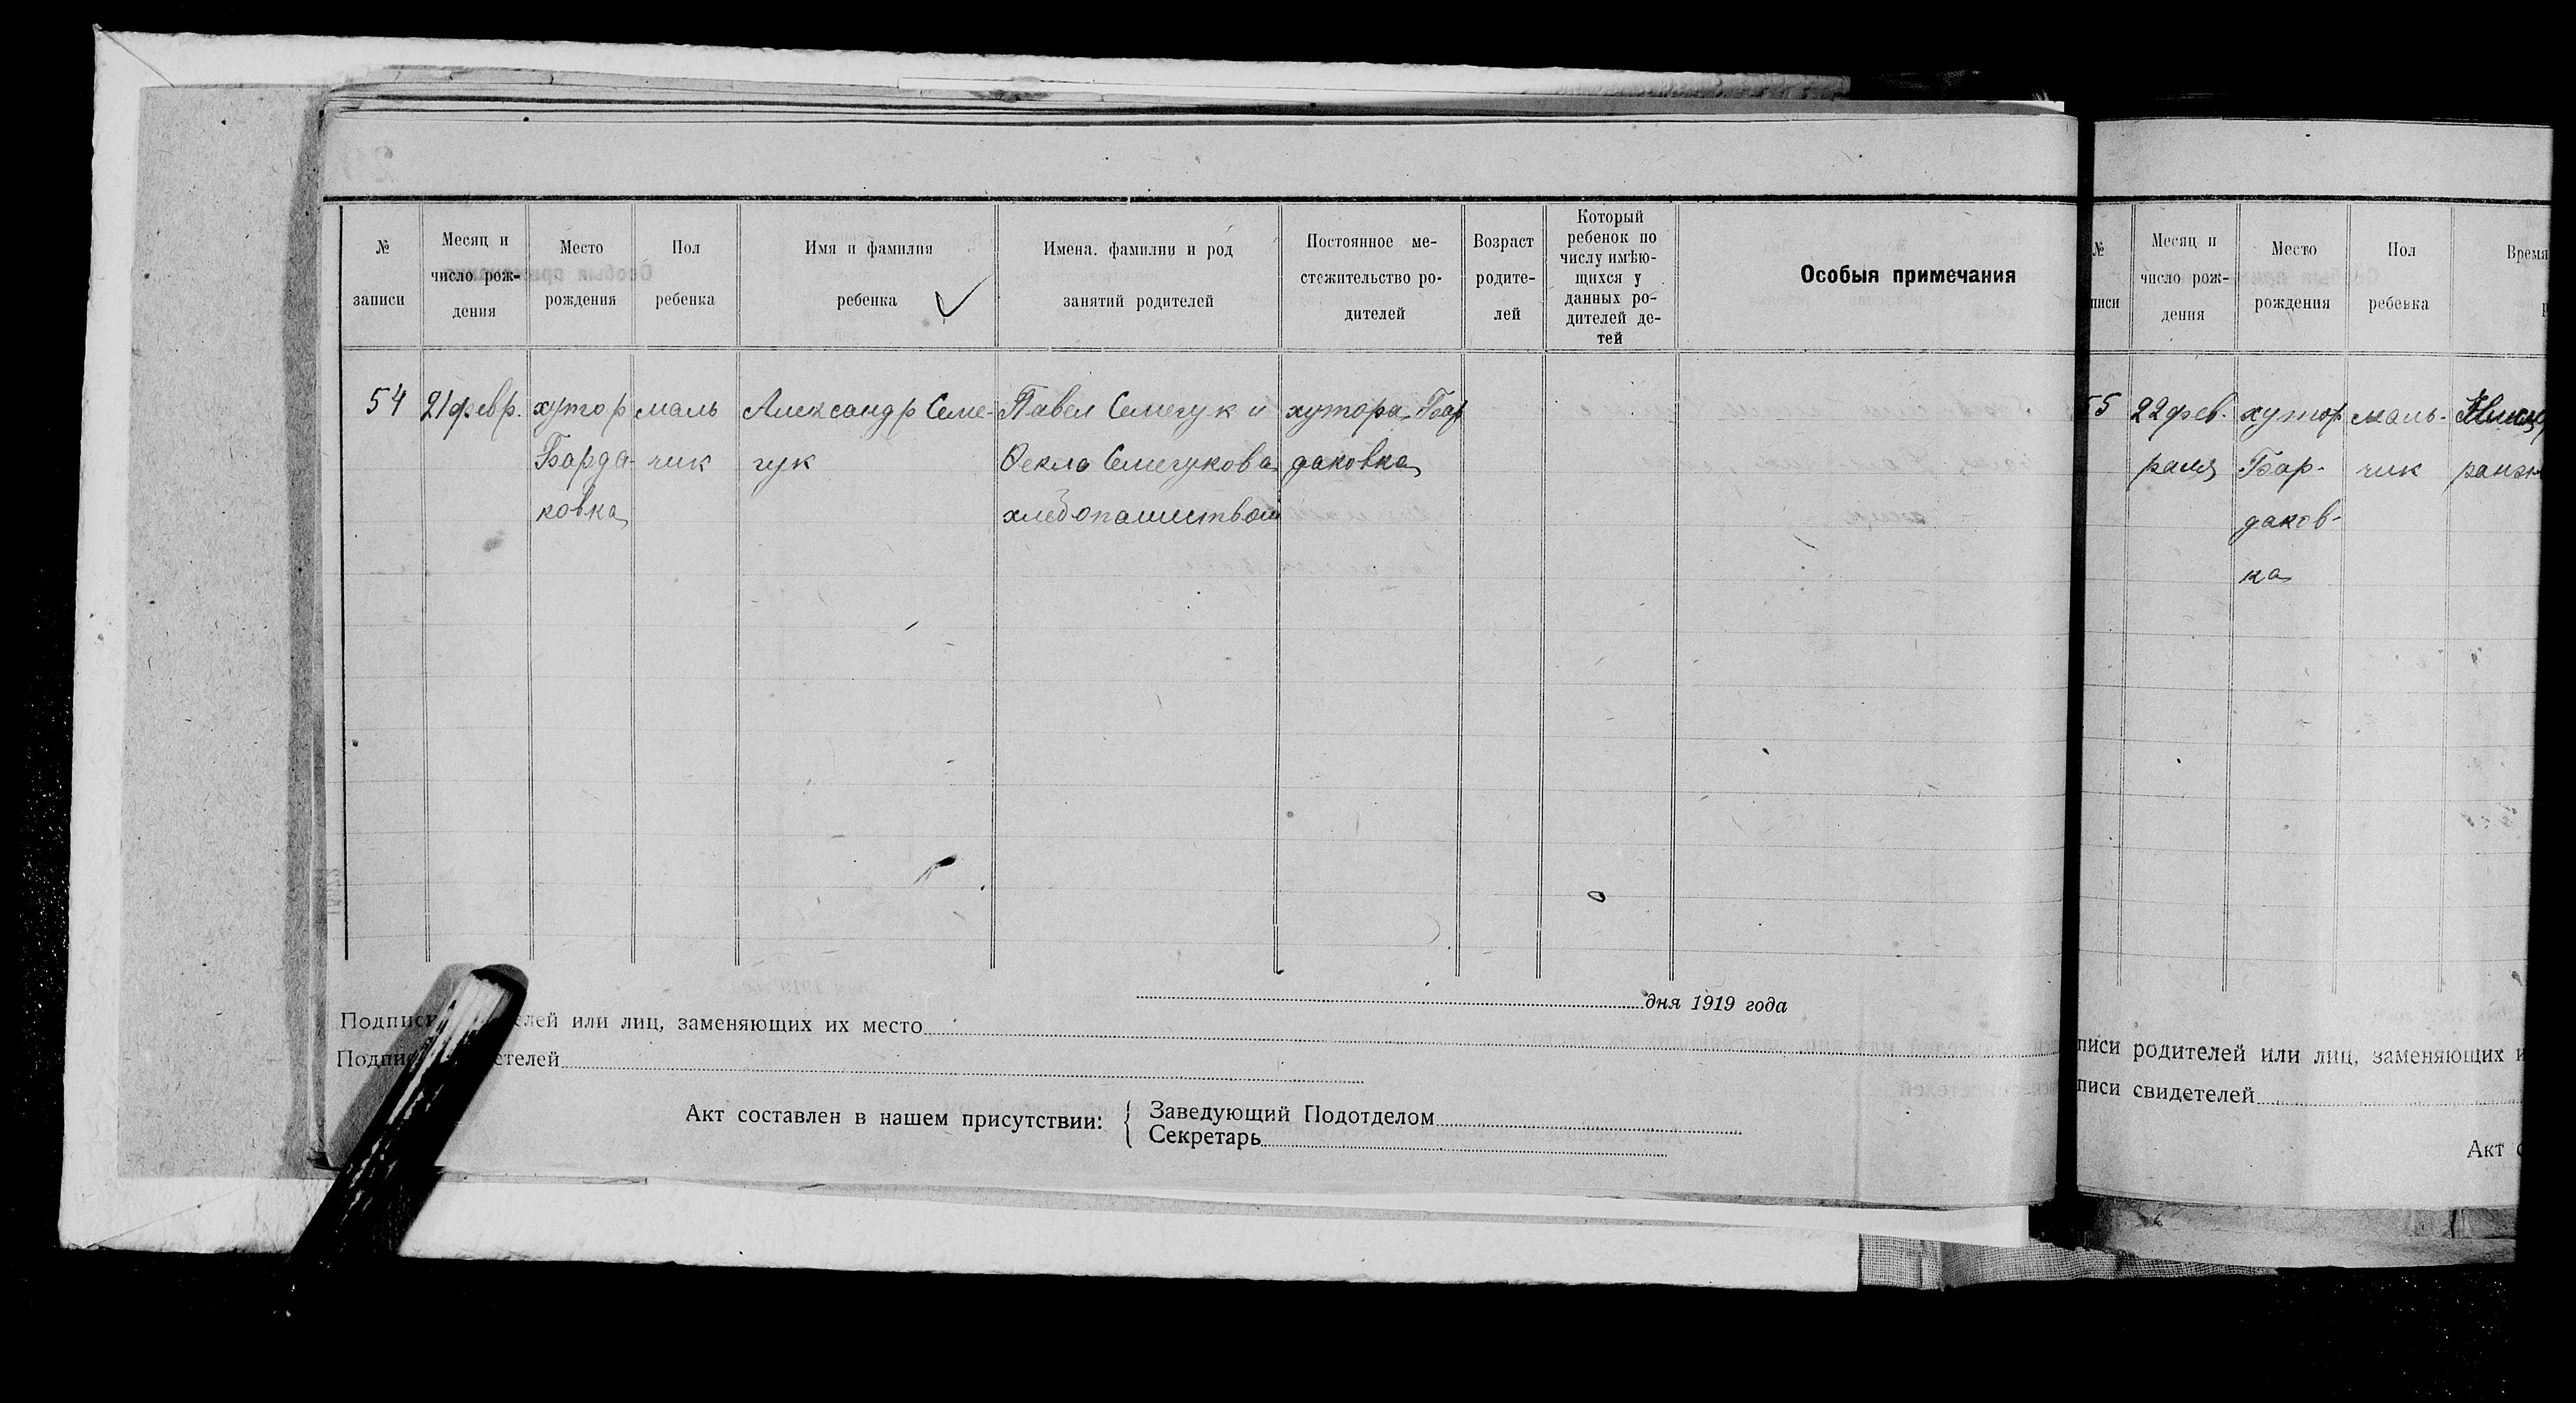 № записи
Месяц и число рождения
Место рождения
Пол ребенка
Имя и фамилия ребенка
Имена, фамилии и род занятий родителей
Постоянное местожительство родителей
Возраст родителей
Который ребенок по числу имѣющихся у данных родителей детей
Особыя примечания
54 21 февр. хутор маль Александр Семе- Павел Семегук и хутора Бар
Барда- чик гук Фекла Семегукова даковка
ковка хлебопашиством
дня 1919 года
Подписи елей или лиц, заменяющих их место
Подписи етелей
Акт составлен в нашем присутствии:
Заведующий Подотделом
Секретарь
№ писи
Месяц и число рождения
Место рождения
Пол ребенка
Время
55 22 фев- хутор маль-
раля Бар- чик
даков-
ка
писи родителей или лиц, заменяющих и
писи свидетелей
Акт с